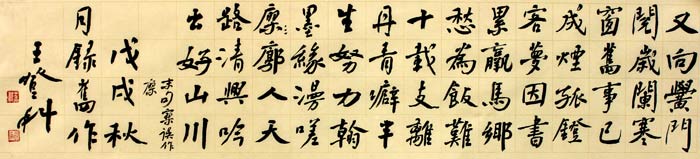 又向黌門
閱歲闌寒
窗舊事已
成煙孤鐙
客夢因書
累羸馬鄉
愁為飯難
十載支離
丹青癖半
生努力翰
墨緣漫嗟
廖廓人天
路清興吟
出好山川
末句寥誤作
廖
戊戌秋
月錄舊作
王登科